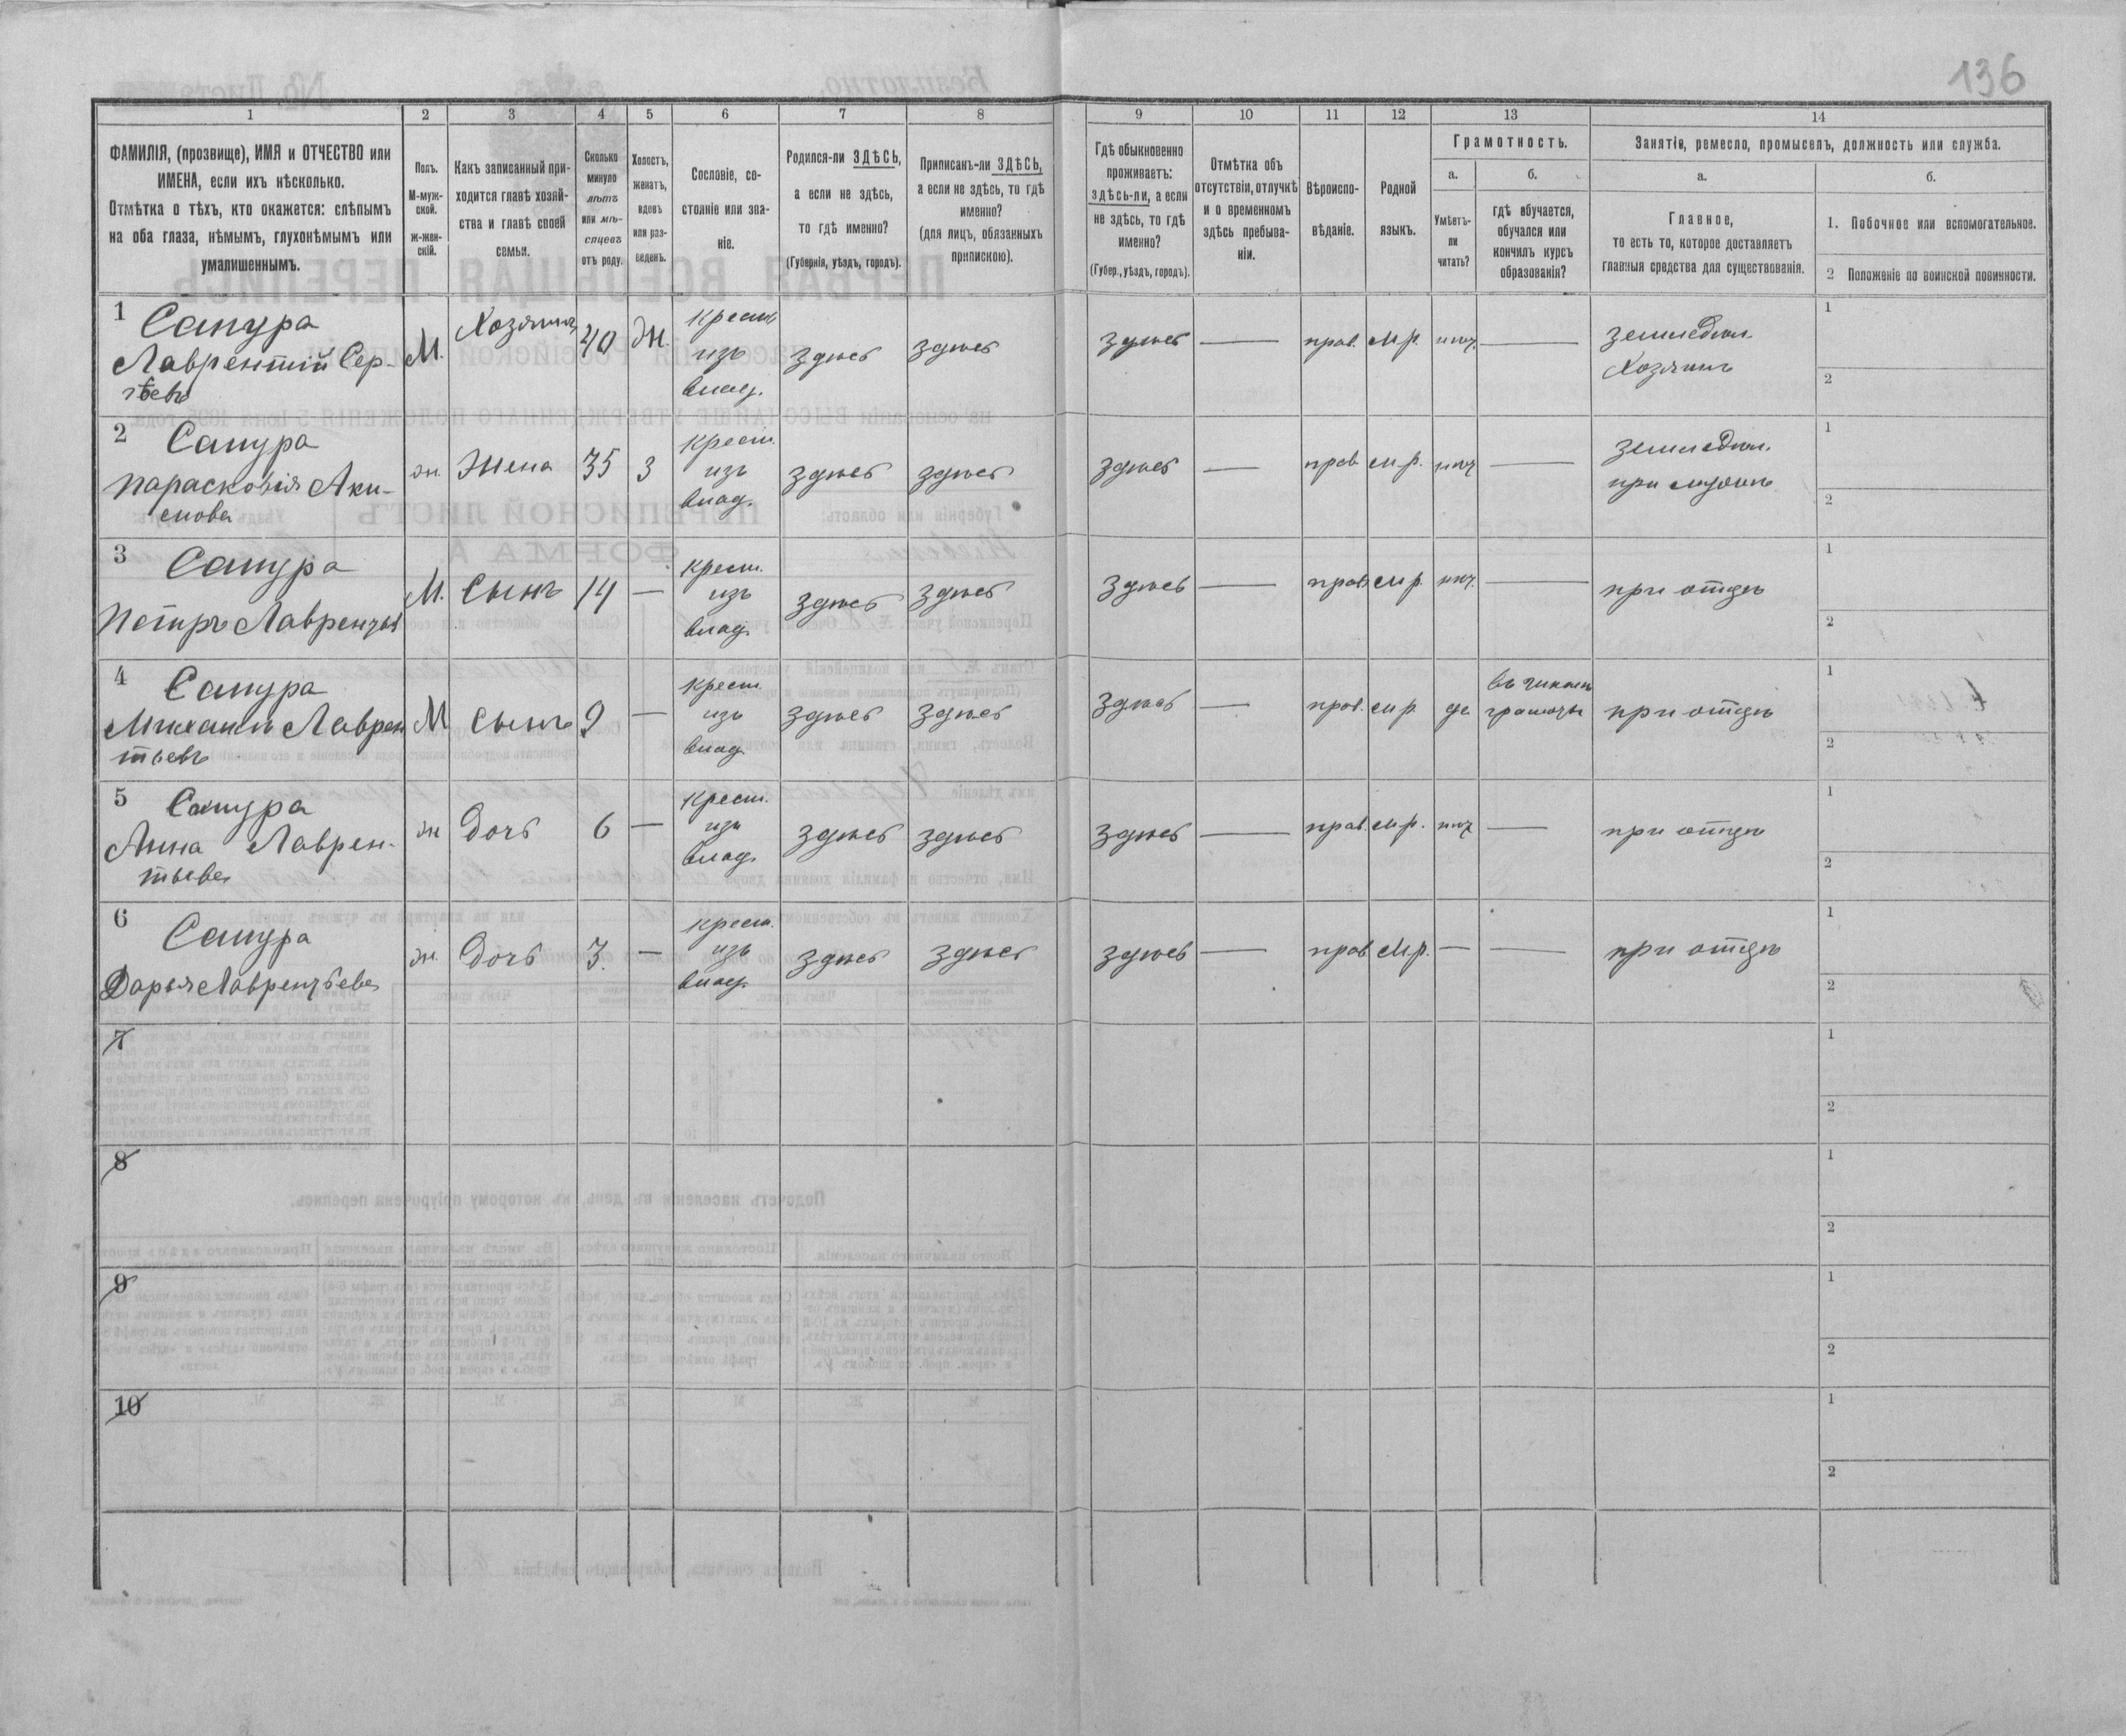 136
1 2 3 4 5 6 7 8 9 10 11 12 13 14
ФАМИЛІЯ, (прозвище), ИМЯ и ОТЧЕСТВО или
ИМЕНА, если ихъ нѣсколько.
Отмѣтка о тѣхъ, кто окажется: слѣпымъ
на оба глаза, нѣмымъ, глухонѣмымъ или
умалишеннымъ.
Полъ.
М-муж-
ской.
Ж-жен-
скій.
Какъ записанный при-
ходится главѣ хозяй-
ства и главѣ своей
семьи.
Сколько
минуло
лѣтъ
или мѣ-
сяцевъ
отъ роду.
Холостъ,
женатъ,
вдовъ
или раз-
веденъ.
Сословіе, со-
стояніе или зва-
ніе.
Родился-ли ЗДѢСЬ,
а если не здѣсь,
то гдѣ именно?
(Губернія, уѣздъ, городъ).
Приписанъ-ли ЗДѢСЬ,
а если не здѣсь, то гдѣ
именно?
(для лицъ, обязанныхъ
припискою).
Гдѣ обыкновенно
проживаетъ:
здѣсь-ли, а если
не здѣсь, то гдѣ
именно?
(Губер., уѣздъ, городъ).
Отмѣтка объ
отсутствіи, отлучкѣ
и о временномъ
здѣсь пребыва-
ніи.
Вѣроиспо-
вѣданіе.
Родной
языкъ.
Грамотность.
а.
Умѣетъ-
ли
читать?
б.
гдѣ обучается,
обучался или
кончилъ курсъ
образованія?
Занятіе, ремесло, промыселъ, должность или служба.
а.
Главное,
то есть то, которое доставляетъ
главныя средства для существованія.
б.
1. Побочное или вспомогательное.
2 Положеніе по воинской повинности.
1 Сапура
Лаврентій Сер-
гѣевъ
М. Хозяинъ 40 Ж. крест. изъ влад. здѣсь здѣсь здѣсь — прав. м.р. нѣт. — земледѣл. Хозяинъ 1 2
2 Сапура
Парасковія Аки-
мова
ж. Жена 35 З крест. изъ влад. здѣсь здѣсь здѣсь — прав. м.р. нѣт — земледѣл. при мужѣ 1 2
3 Сапура
Петръ Лаврентьев
М. Сынъ 14 — крест. изъ влад. здѣсь здѣсь здѣсь — прав. м.р. нѣт. — при отцѣ 1 2
4 Сапура
Михаилъ Лаврен
тьевъ
М Сынъ 9 — крест. изъ влад. здѣсь здѣсь здѣсь — прав. м.р. да въ школѣ грамоты при отцѣ 1 2
5 Сапура
Анна Лаврен-
тьева
ж Дочь 6 — крест. изъ влад. здѣсь здѣсь здѣсь — прав. м.р. нѣт — при отцѣ 1 2
6 Сапура
Дарья Лаврентьева
ж. Дочь 3. — крест. изъ влад. здѣсь здѣсь здѣсь — прав. м.р. — — при отцѣ 1 2
7 1 2
8 1 2
9 1 2
10 1 2